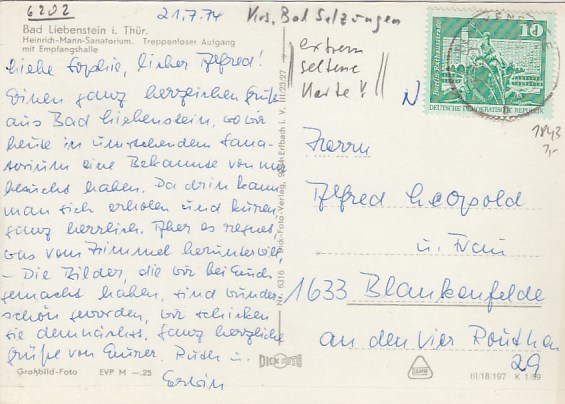 6202
21.7.74
Krs. Bad Salzungen
Bad Liebenstein i. Thür.
Heinrich-Mann-Sanatorium. Treppenloser Aufgang
mit Empfangshalle
extrem
seltene
Karte!
10
Berlin, Rathausstraße
DEUTSCHE DEMOKRATISCHE REPUBLIK
1843
Liebe Sophie, lieber Alfred!
Einen ganz herzlichen Gruß
aus Bad Liebenstein, wo wir
heute in umstehendem Sana-
torium eine Bekannte von mir
besucht haben. Da drin kann
man sich erholen und kuren,
ganz herrlich. Aber es regnet,
was vom Himmel herunter will,
- Die Bilder, die wir bei Euch
gemacht haben, sind wunder-
schön geworden, wir schicken
sie demnächst. Ganz herzliche
Grüße von Eurer Ruth u.
Erwin
Großbild-Foto EVP M —.25
6316 Dick-Foto-Verlag, Erlbach i. V. III/23/27
DICK FOTO
Herrn
Alfred Leopold
u. Frau
1633 Blankenfelde
an den vier Routhan
29
III/18/197 K 1/69